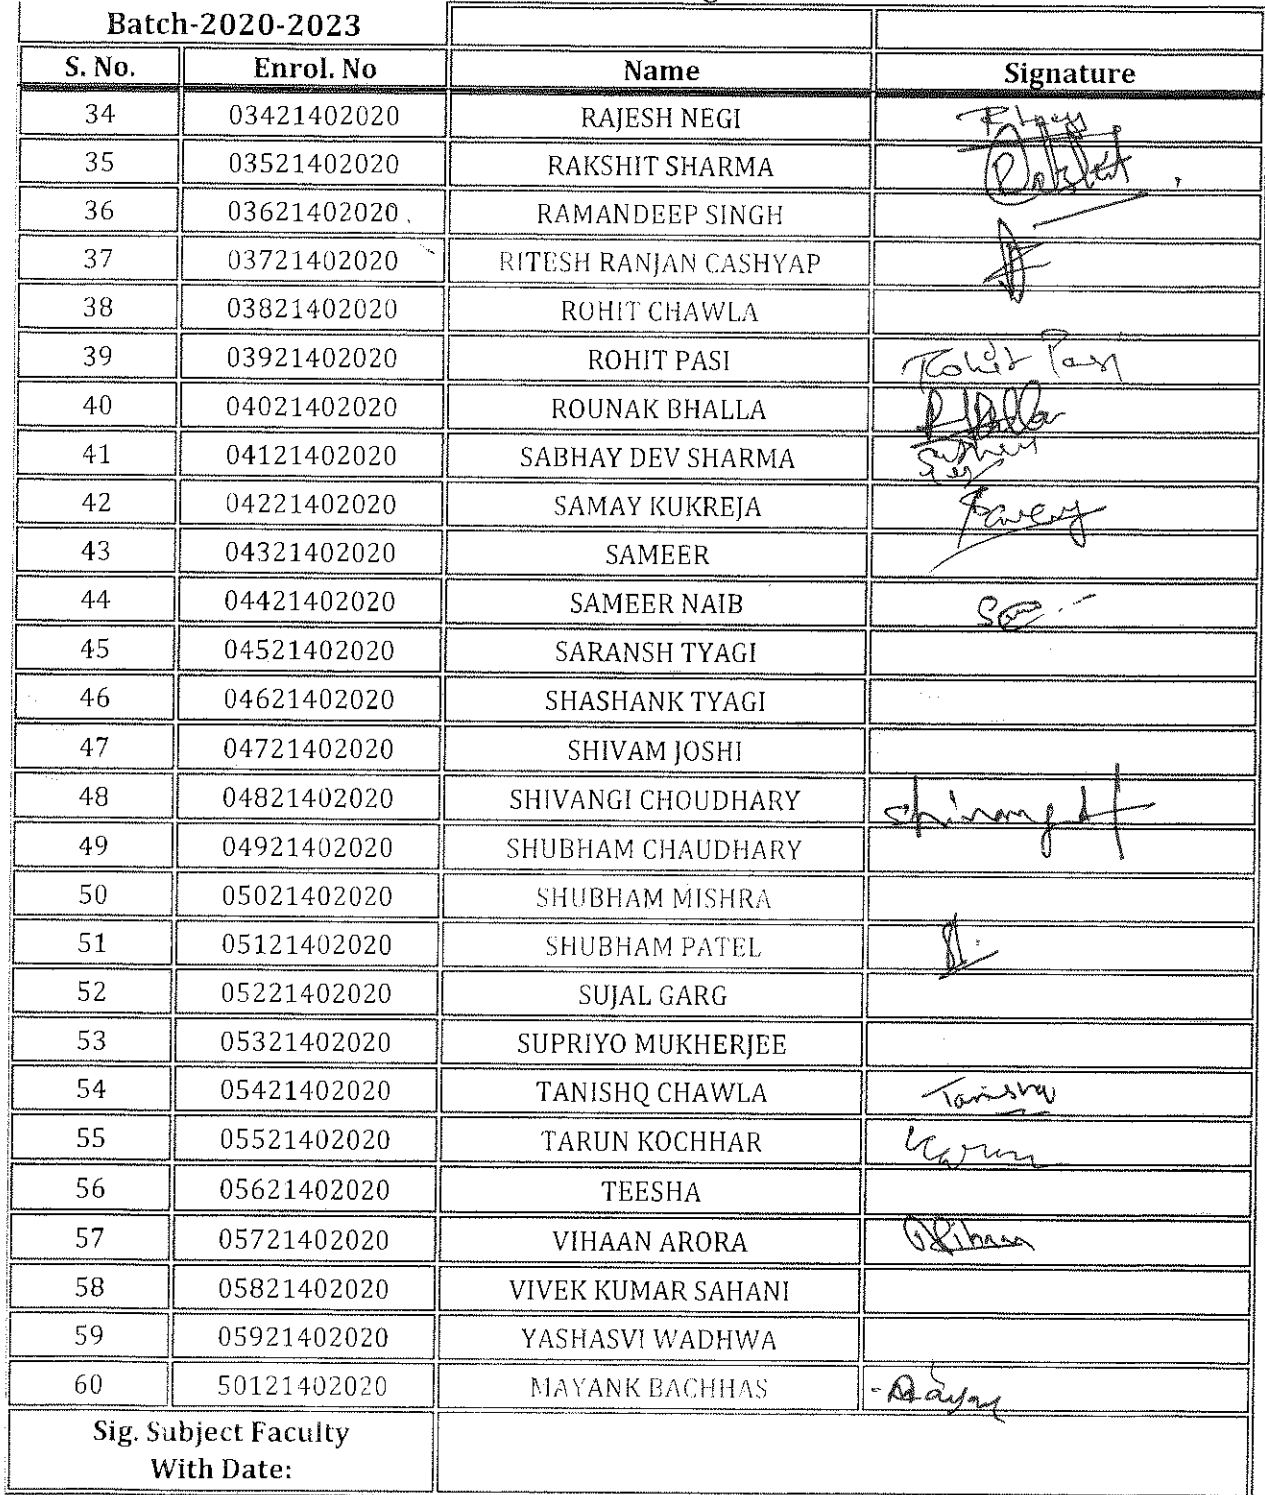 Batch-2020-2023
S. No. Enrol. No Name Signature
34 03421402020 RAJESH NEGI
35 03521402020 RAKSHIT SHARMA Rakshit
36 03621402020 RAMANDEEP SINGH
37 03721402020 RITESH RANJAN CASHYAP
38 03821402020 ROHIT CHAWLA
39 03921402020 ROHIT PASI Rohit Pasi
40 04021402020 ROUNAK BHALLA RBhalla
41 04121402020 SABHAY DEV SHARMA
42 04221402020 SAMAY KUKREJA
43 04321402020 SAMEER
44 04421402020 SAMEER NAIB
45 04521402020 SARANSH TYAGI
46 04621402020 SHASHANK TYAGI
47 04721402020 SHIVAM JOSHI
48 04821402020 SHIVANGI CHOUDHARY Shivangi
49 04921402020 SHUBHAM CHAUDHARY
50 05021402020 SHUBHAM MISHRA
51 05121402020 SHUBHAM PATEL
52 05221402020 SUJAL GARG
53 05321402020 SUPRIYO MUKHERJEE
54 05421402020 TANISHQ CHAWLA Tanishq
55 05521402020 TARUN KOCHHAR Tarun
56 05621402020 TEESHA
57 05721402020 VIHAAN ARORA Vihaan
58 05821402020 VIVEK KUMAR SAHANI
59 05921402020 YASHASVI WADHWA
60 50121402020 MAYANK BACHHAS
Sig. Subject Faculty
With Date: